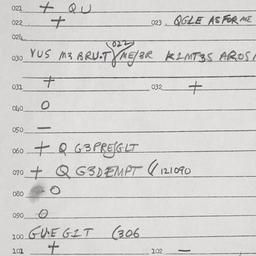 021 + QU
022 + 023. QGLE AS FOR ME
024
030 VUS M3 BRU.T (022) ME/3R K1MT3S AROS
031 + 032 +
040 O
050 —
060 + Q G3PRE/GLT
070 + Q G3DEMPT (( 121090
080 O
090 O
100 GU.E G2T (306
101 + 102 —